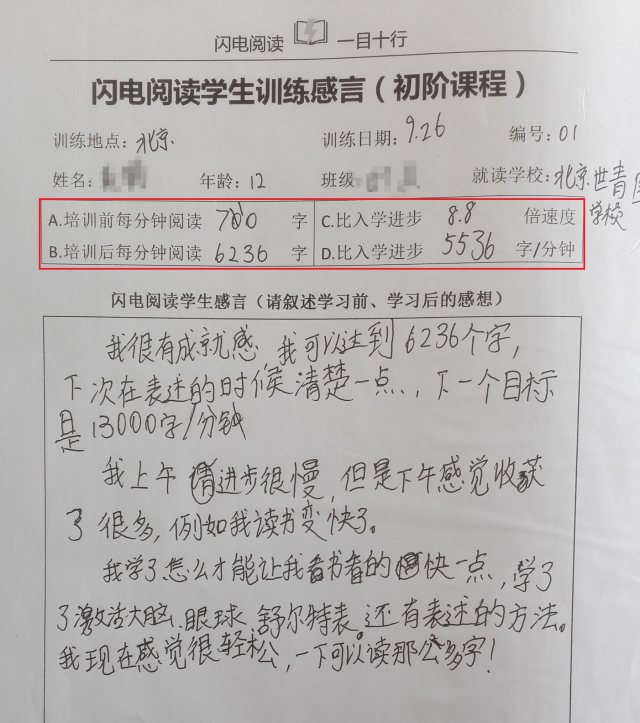 闪电阅读 一目十行
闪电阅读学生训练感言（初阶课程）
训练地点：北京 训练日期：9.26 编号：01
姓名： 年龄：12 班级 就读学校：北京世青
学校
A.培训前每分钟阅读 700 字 C.比入学进步 8.8 倍速度
B.培训后每分钟阅读 6236 字 D.比入学进步 5536 字/分钟
闪电阅读学生感言（请叙述学习前、学习后的感想）
我很有成就感，我可以达到6236个字，
下次在表述的时候清楚一点，下一个目标
是13000字/分钟
我上午进步很慢，但是下午感觉收获
了很多，例如我读书变快了。
我学了怎么才能让我看书看的快一点，学了
了激活大脑、眼球、舒尔特表。还有表述的方法。
我现在感觉很轻松，一下可以读那么多字！